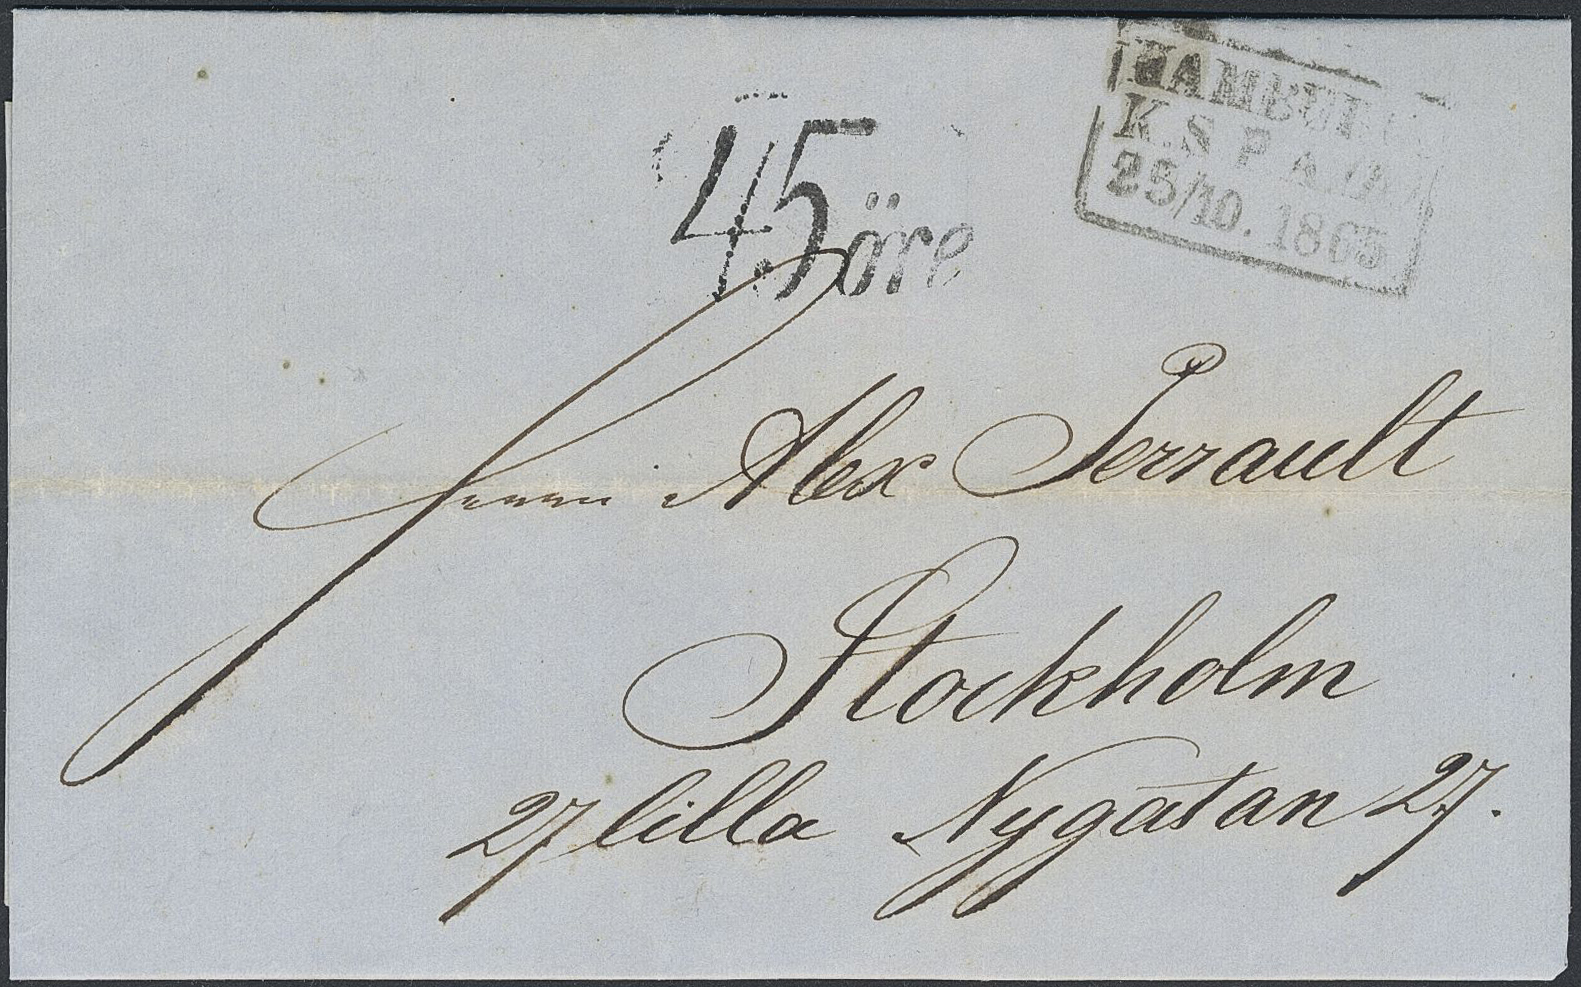 45 öre
HAMBURG
K.S.P.A.(D)
25/10. 1865
Herrn Alex Perrault
Stockholm
27 lilla Nygatan 27.